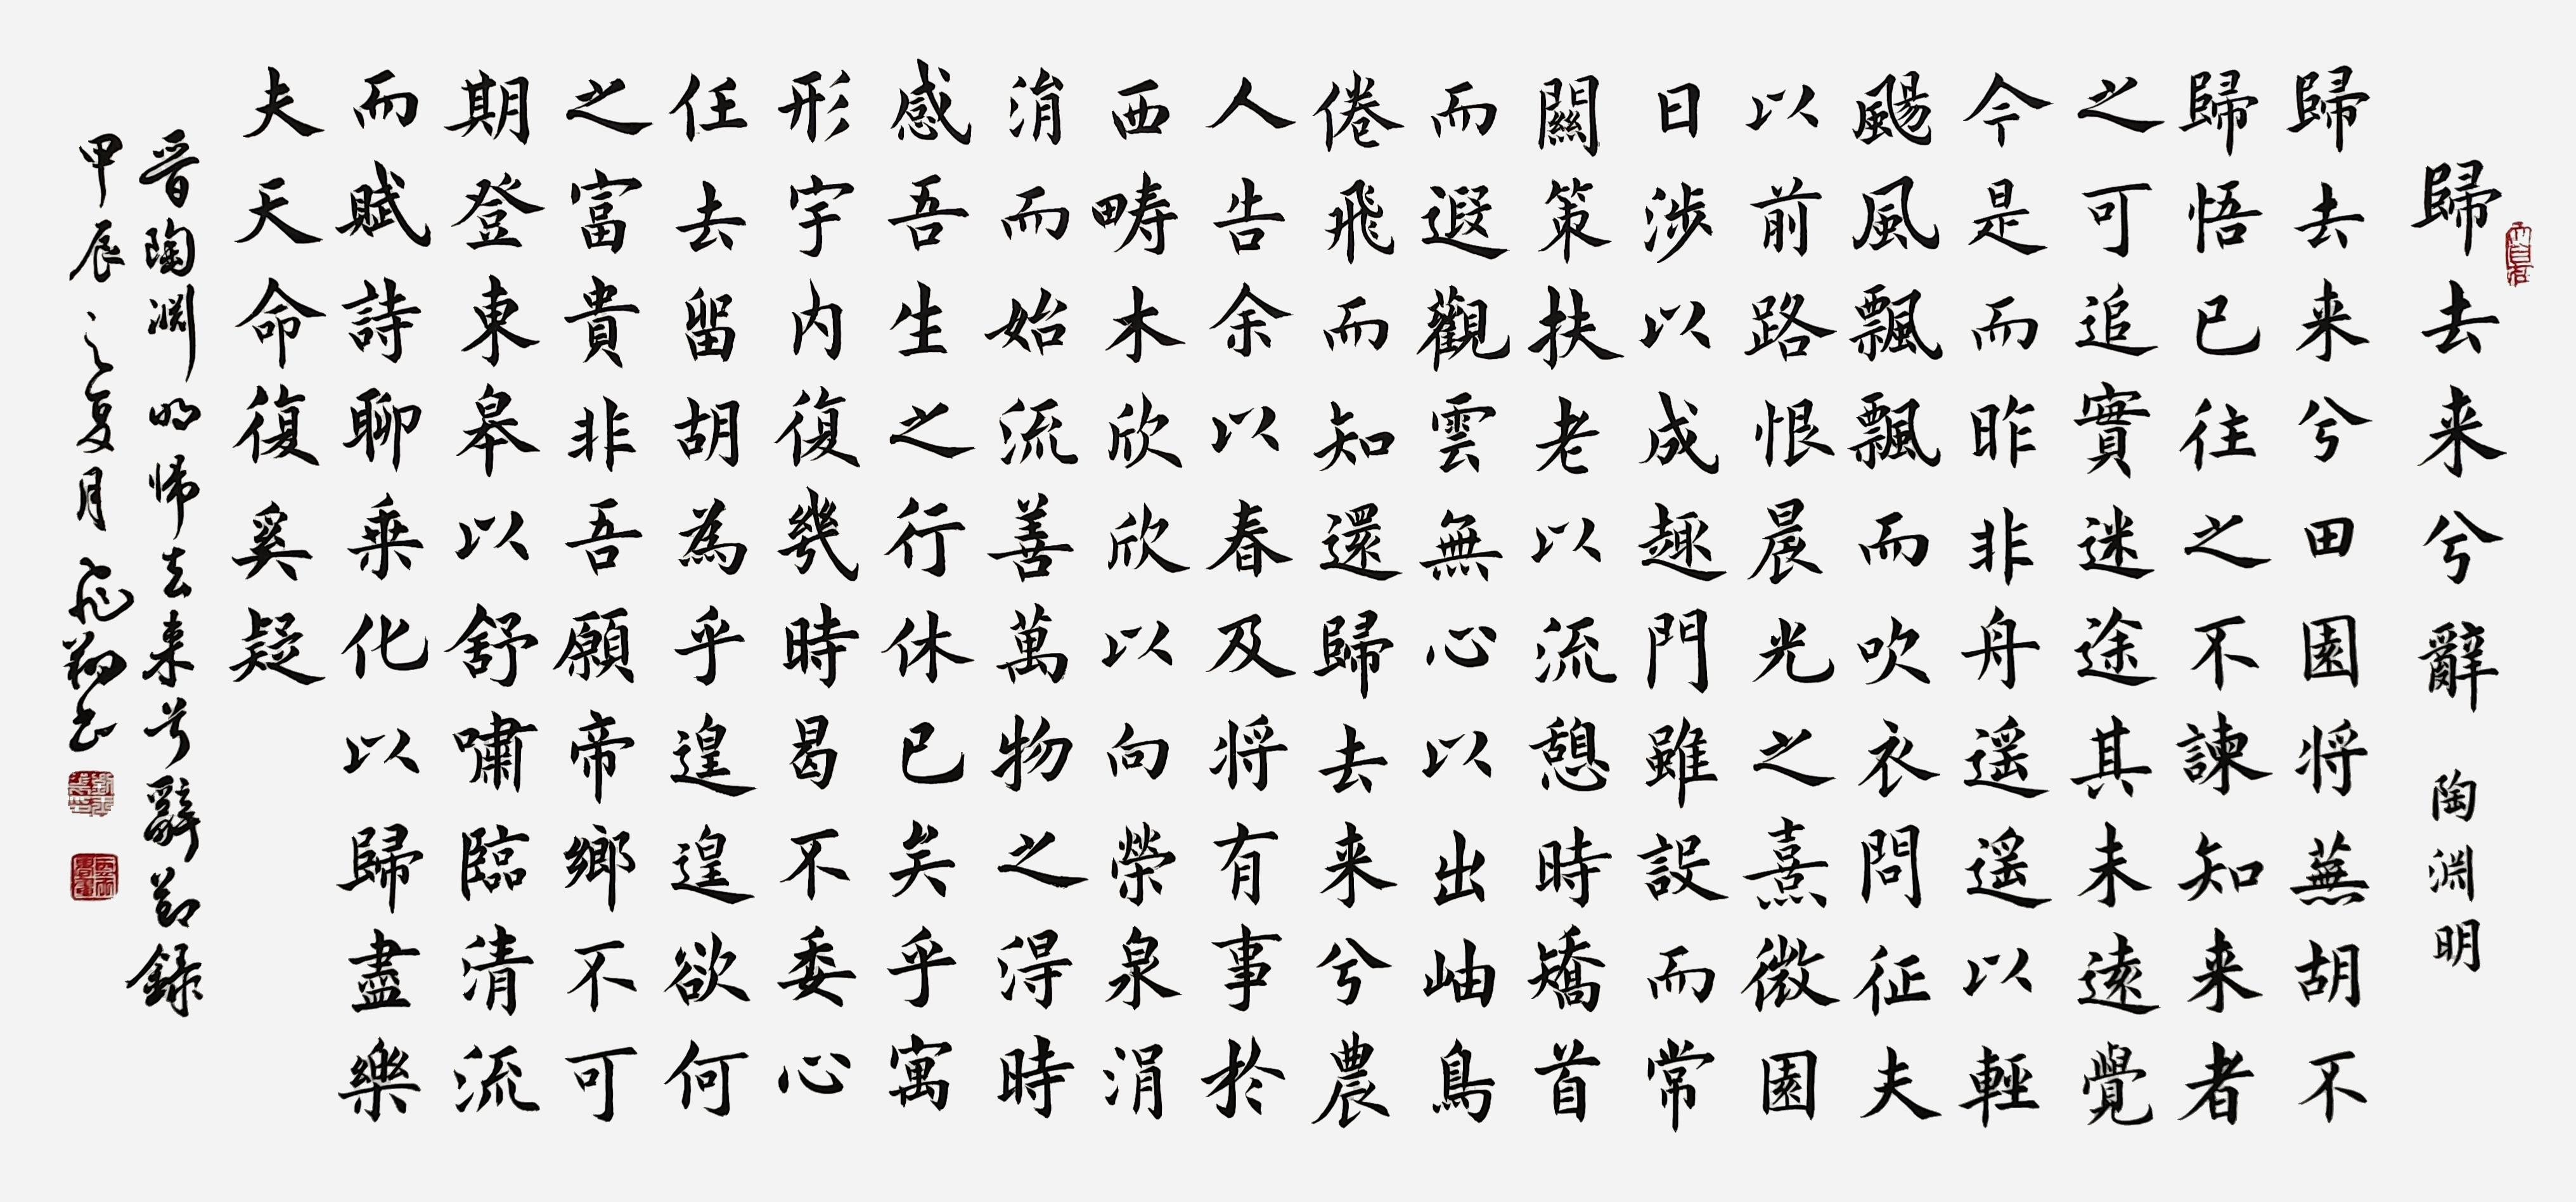 歸去来兮辭 陶淵明
歸去来兮田園将蕪胡不
歸悟已往之不諫知来者
之可追實迷途其未遠覺
今是而昨非舟遥遥以輕
颺風飄飄而吹衣問征夫
以前路恨晨光之熹微園
日涉以成趣門雖設而常
關策扶老以流憩時矯首
而遐觀雲無心以出岫鳥
倦飛而知還歸去来兮農
人告余以春及将有事於
西畴木欣欣以向榮泉涓
涓而始流善萬物之得時
感吾生之行休已矣乎寓
形宇内復幾時曷不委心
任去留胡為乎遑遑欲何
之富貴非吾願帝鄉不可
期登東皋以舒嘯臨清流
而賦詩聊乗化以歸盡樂
夫天命復奚疑
晋陶淵明歸去来兮辭節録
甲辰之夏月飛翔書